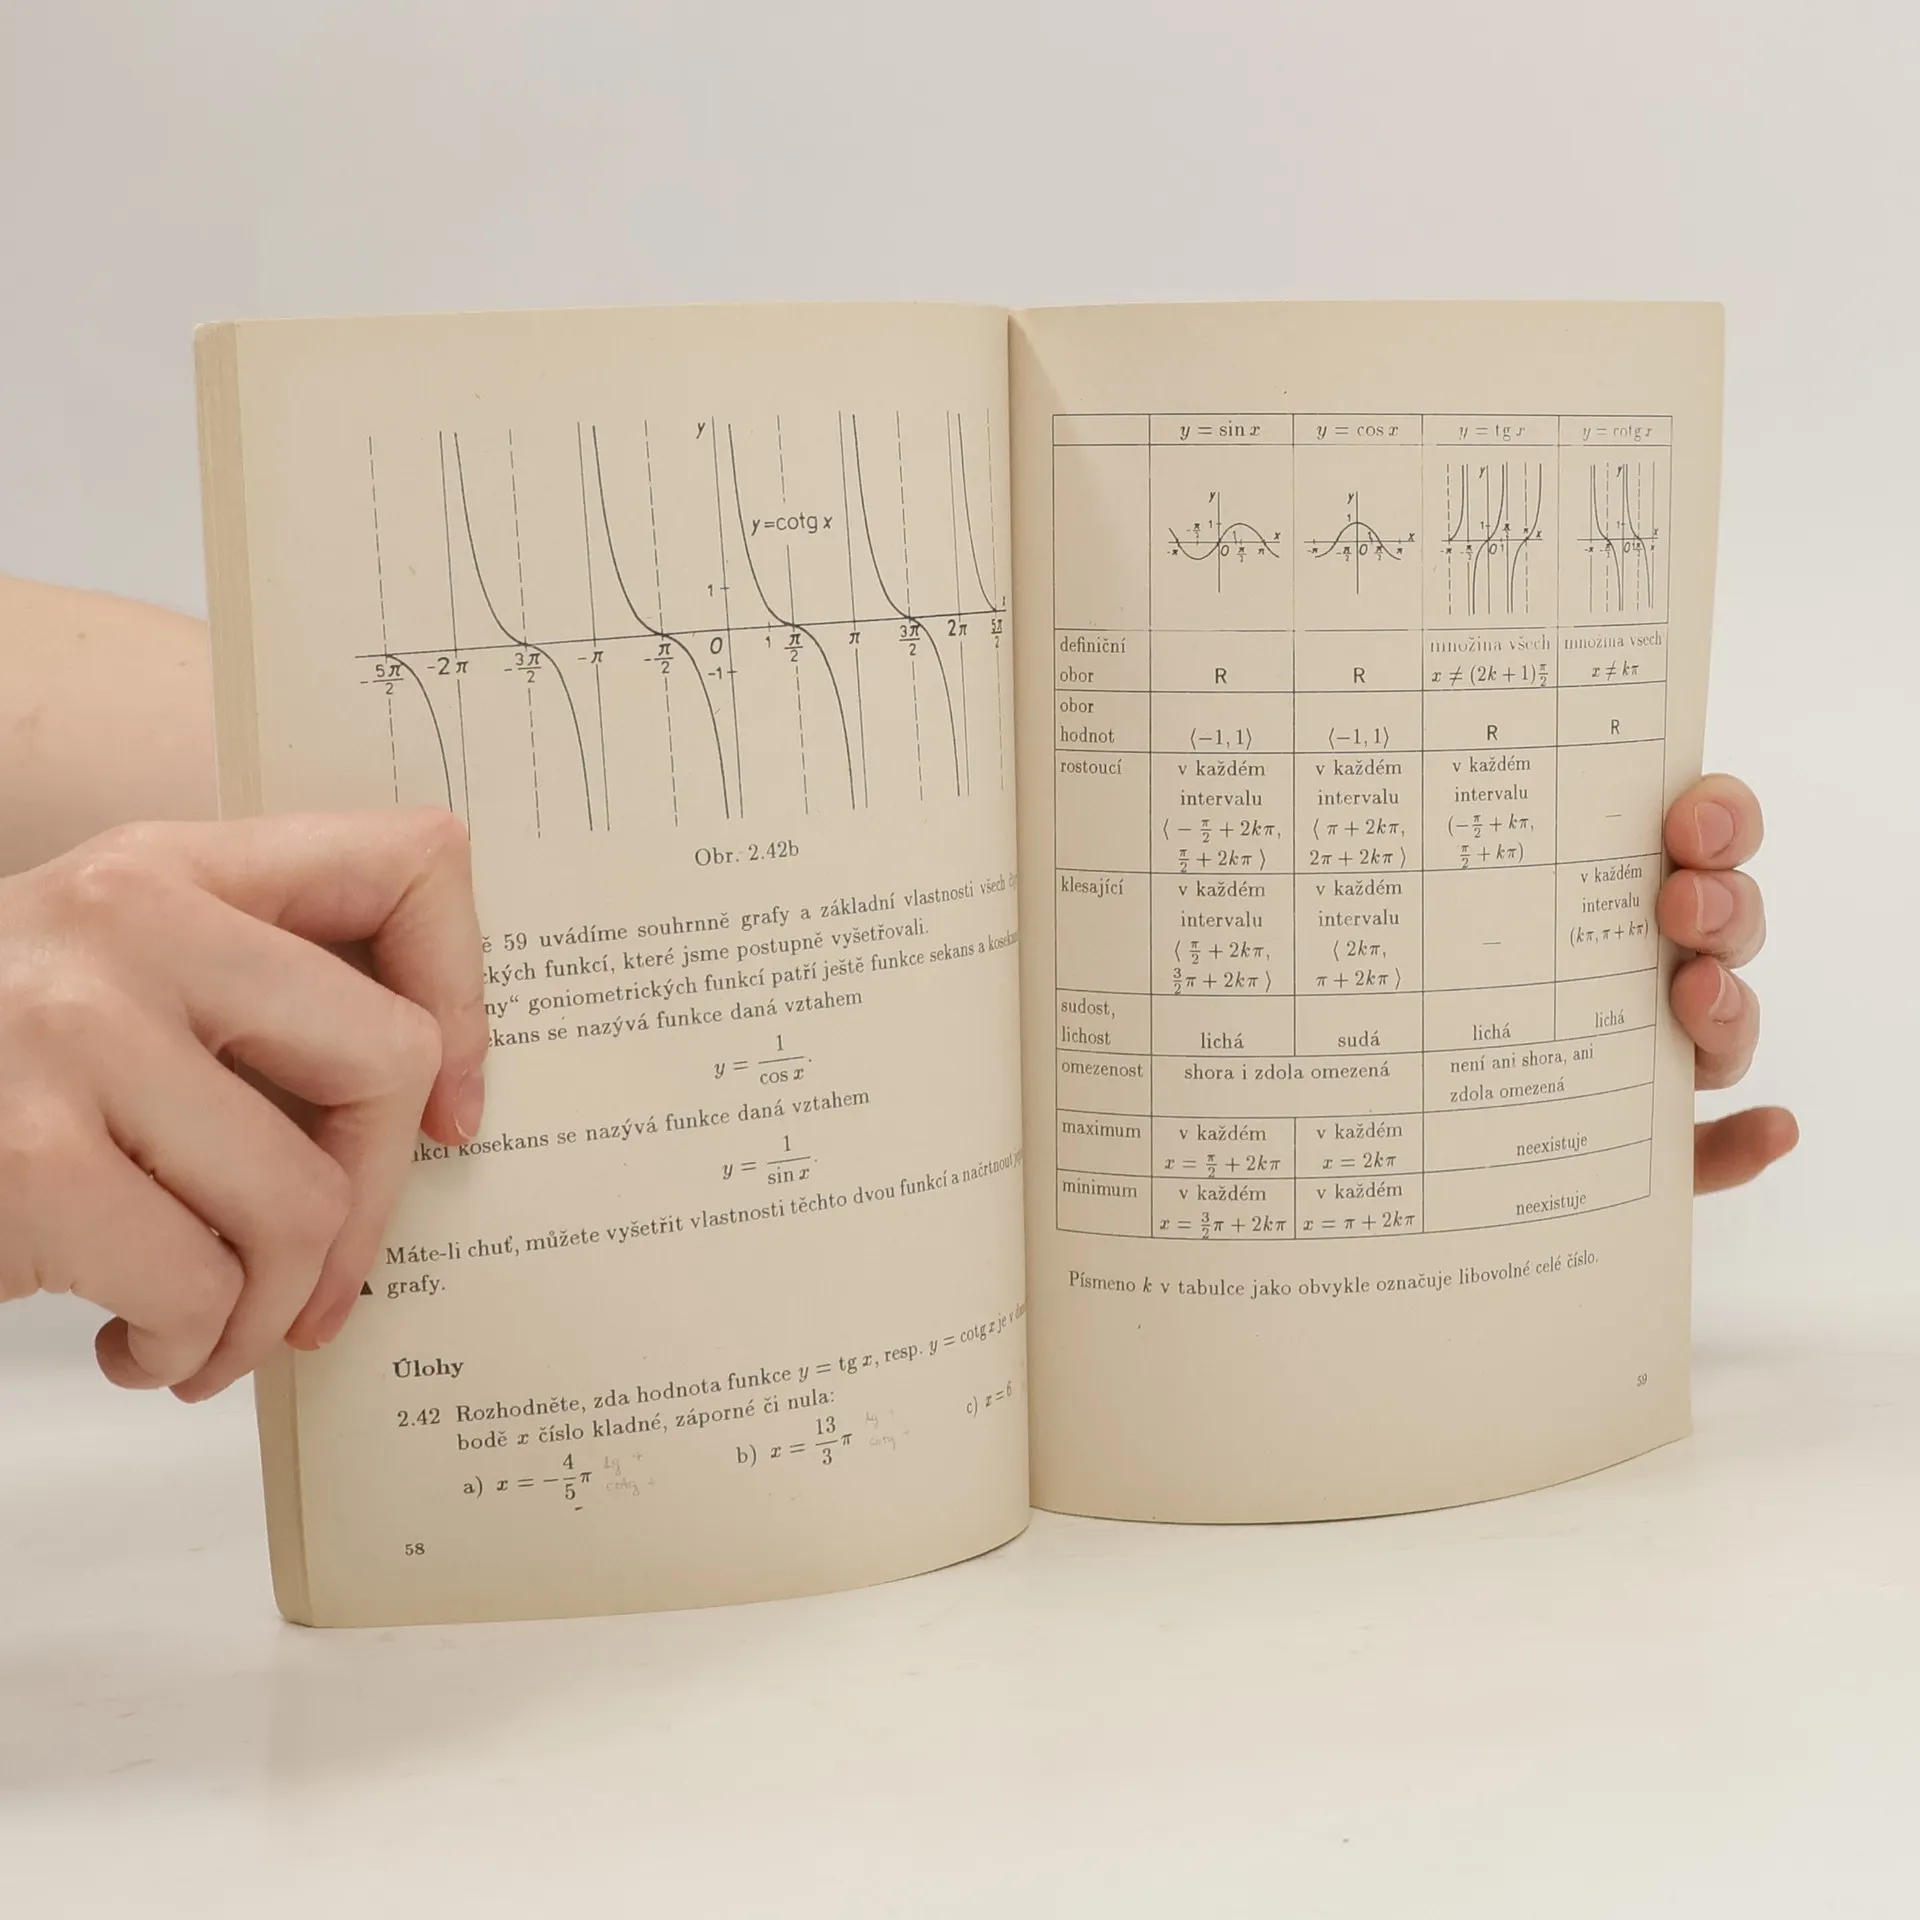 y
y=cotg x
1
0
-1
-5π/2 -2π -3π/2 -π -π/2 1 π/2 π 3π/2 2π 5π/2
Obr. 2.42b
ě 59 uvádíme souhrnně grafy a základní vlastnosti všech
ckých funkcí, které jsme postupně vyšetřovali.
ny“ goniometrických funkcí patří ještě funkce sekans a
kans se nazývá funkce daná vztahem
y = 1/cos x.
kcí kosekans se nazývá funkce daná vztahem
y = 1/sin x.
Máte-li chuť, můžete vyšetřit vlastnosti těchto dvou funkcí a načrtnout
▲ grafy.
Úlohy
2.42 Rozhodněte, zda hodnota funkce y = tg x, resp. y = cotg x je v
bodě x číslo kladné, záporné či nula:
a) x = −4/5π tg + cotg + b) x = 13/3π tg + cotg + c) x = 6
58
y = sin x y = cos x y = tg x y = cotg x
y 1 x -π -π/2 0 1 π/2 π
y 1 x -π -π/2 0 1 π/2 π
y 1 x -π -π/2 0 1 π/2 π
y 1 x -π -π/2 0 1 π/2 π
definiční obor R R množina všech x ≠ (2k + 1)π/2 množina všech x ≠ kπ
obor hodnot ⟨−1, 1⟩ ⟨−1, 1⟩ R R
rostoucí v každém intervalu ⟨ −π/2 + 2kπ, π/2 + 2kπ ⟩ v každém intervalu ⟨ π + 2kπ, 2π + 2kπ ⟩ v každém intervalu (−π/2 + kπ, π/2 + kπ) —
klesající v každém intervalu ⟨ π/2 + 2kπ, 3/2π + 2kπ ⟩ v každém intervalu ⟨ 2kπ, π + 2kπ ⟩ — v každém intervalu (kπ, π + kπ)
sudost, lichost lichá sudá lichá lichá
omezenost shora i zdola omezená není ani shora, ani zdola omezená
maximum v každém x = π/2 + 2kπ v každém x = 2kπ neexistuje
minimum v každém x = 3/2π + 2kπ v každém x = π + 2kπ neexistuje
Písmeno k v tabulce jako obvykle označuje libovolné celé číslo.
59